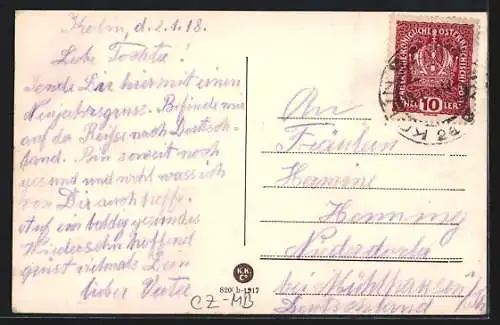 Kolin, d. 2.1.18.
Liebe Tochter!
Sende Dir hier mit einen
Neujahrsgruss. Befinde mich
auf der Reise nach Deutsch-
land. Bin soweit noch
gesund und wohl was ich
von Dir auch hoffe.
Auf ein baldig gesundes
Wiedersehn hoffend
grüsst vielmals Dein
lieber Vater
An
Fräulein
Hermine
Henning
Niederdorla
bei Mühlhausen i/Th
Deutschland
KAISERLICHE KÖNIGLICHE ÖSTERREICHISCHE POST
HEL 10 LER
KOLIN
K.K.
Co
820 b-1917
CZ-MB